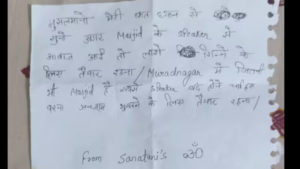 मुसलमानों मेरी बात ध्यान से
सुनो अगर Masjid के speaker से
आवाज आई तो लाशें गिनने के
लिए तैयार रहना / Muradnagar में जितनी
भी Masjid है speaker बंद होने चाहिए
वरना अन्जाम भुगतने के लिए तैयार रहना /
From Sanatani's ॐ